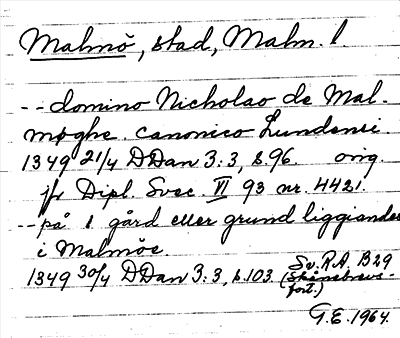 Malmö, stad, Malm. l
-- domino Nicholao de Mal-
møghe canonico Lundensi.
1349 21/4 DDan 3:3, s 96. orig.
jfr Dipl. Svec. VI 93 nr. 4421.
-- på 1 gård eller grund liggiandes
i Malmöe.
1349 30/4 DDan 3:3, s.103. Sv.R.A. B29
(Skånebrevs-
fört.)
G.E. 1964.